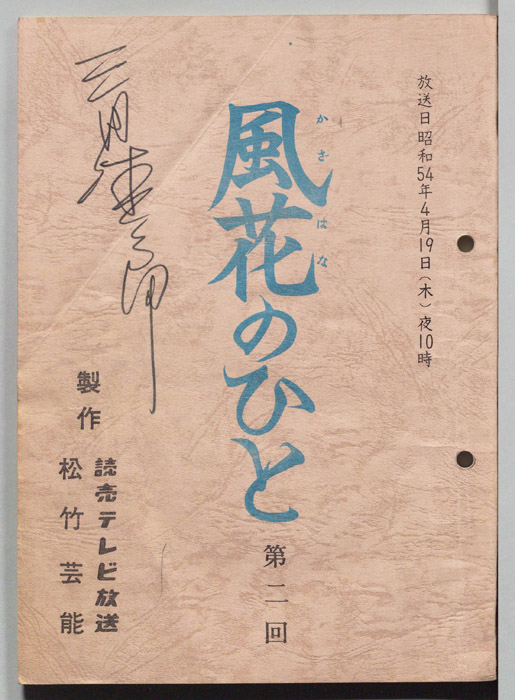 放送日昭和54年4月19日(木)夜10時
かざ はな
風花のひと
第二回
製作
読売テレビ放送
松竹芸能